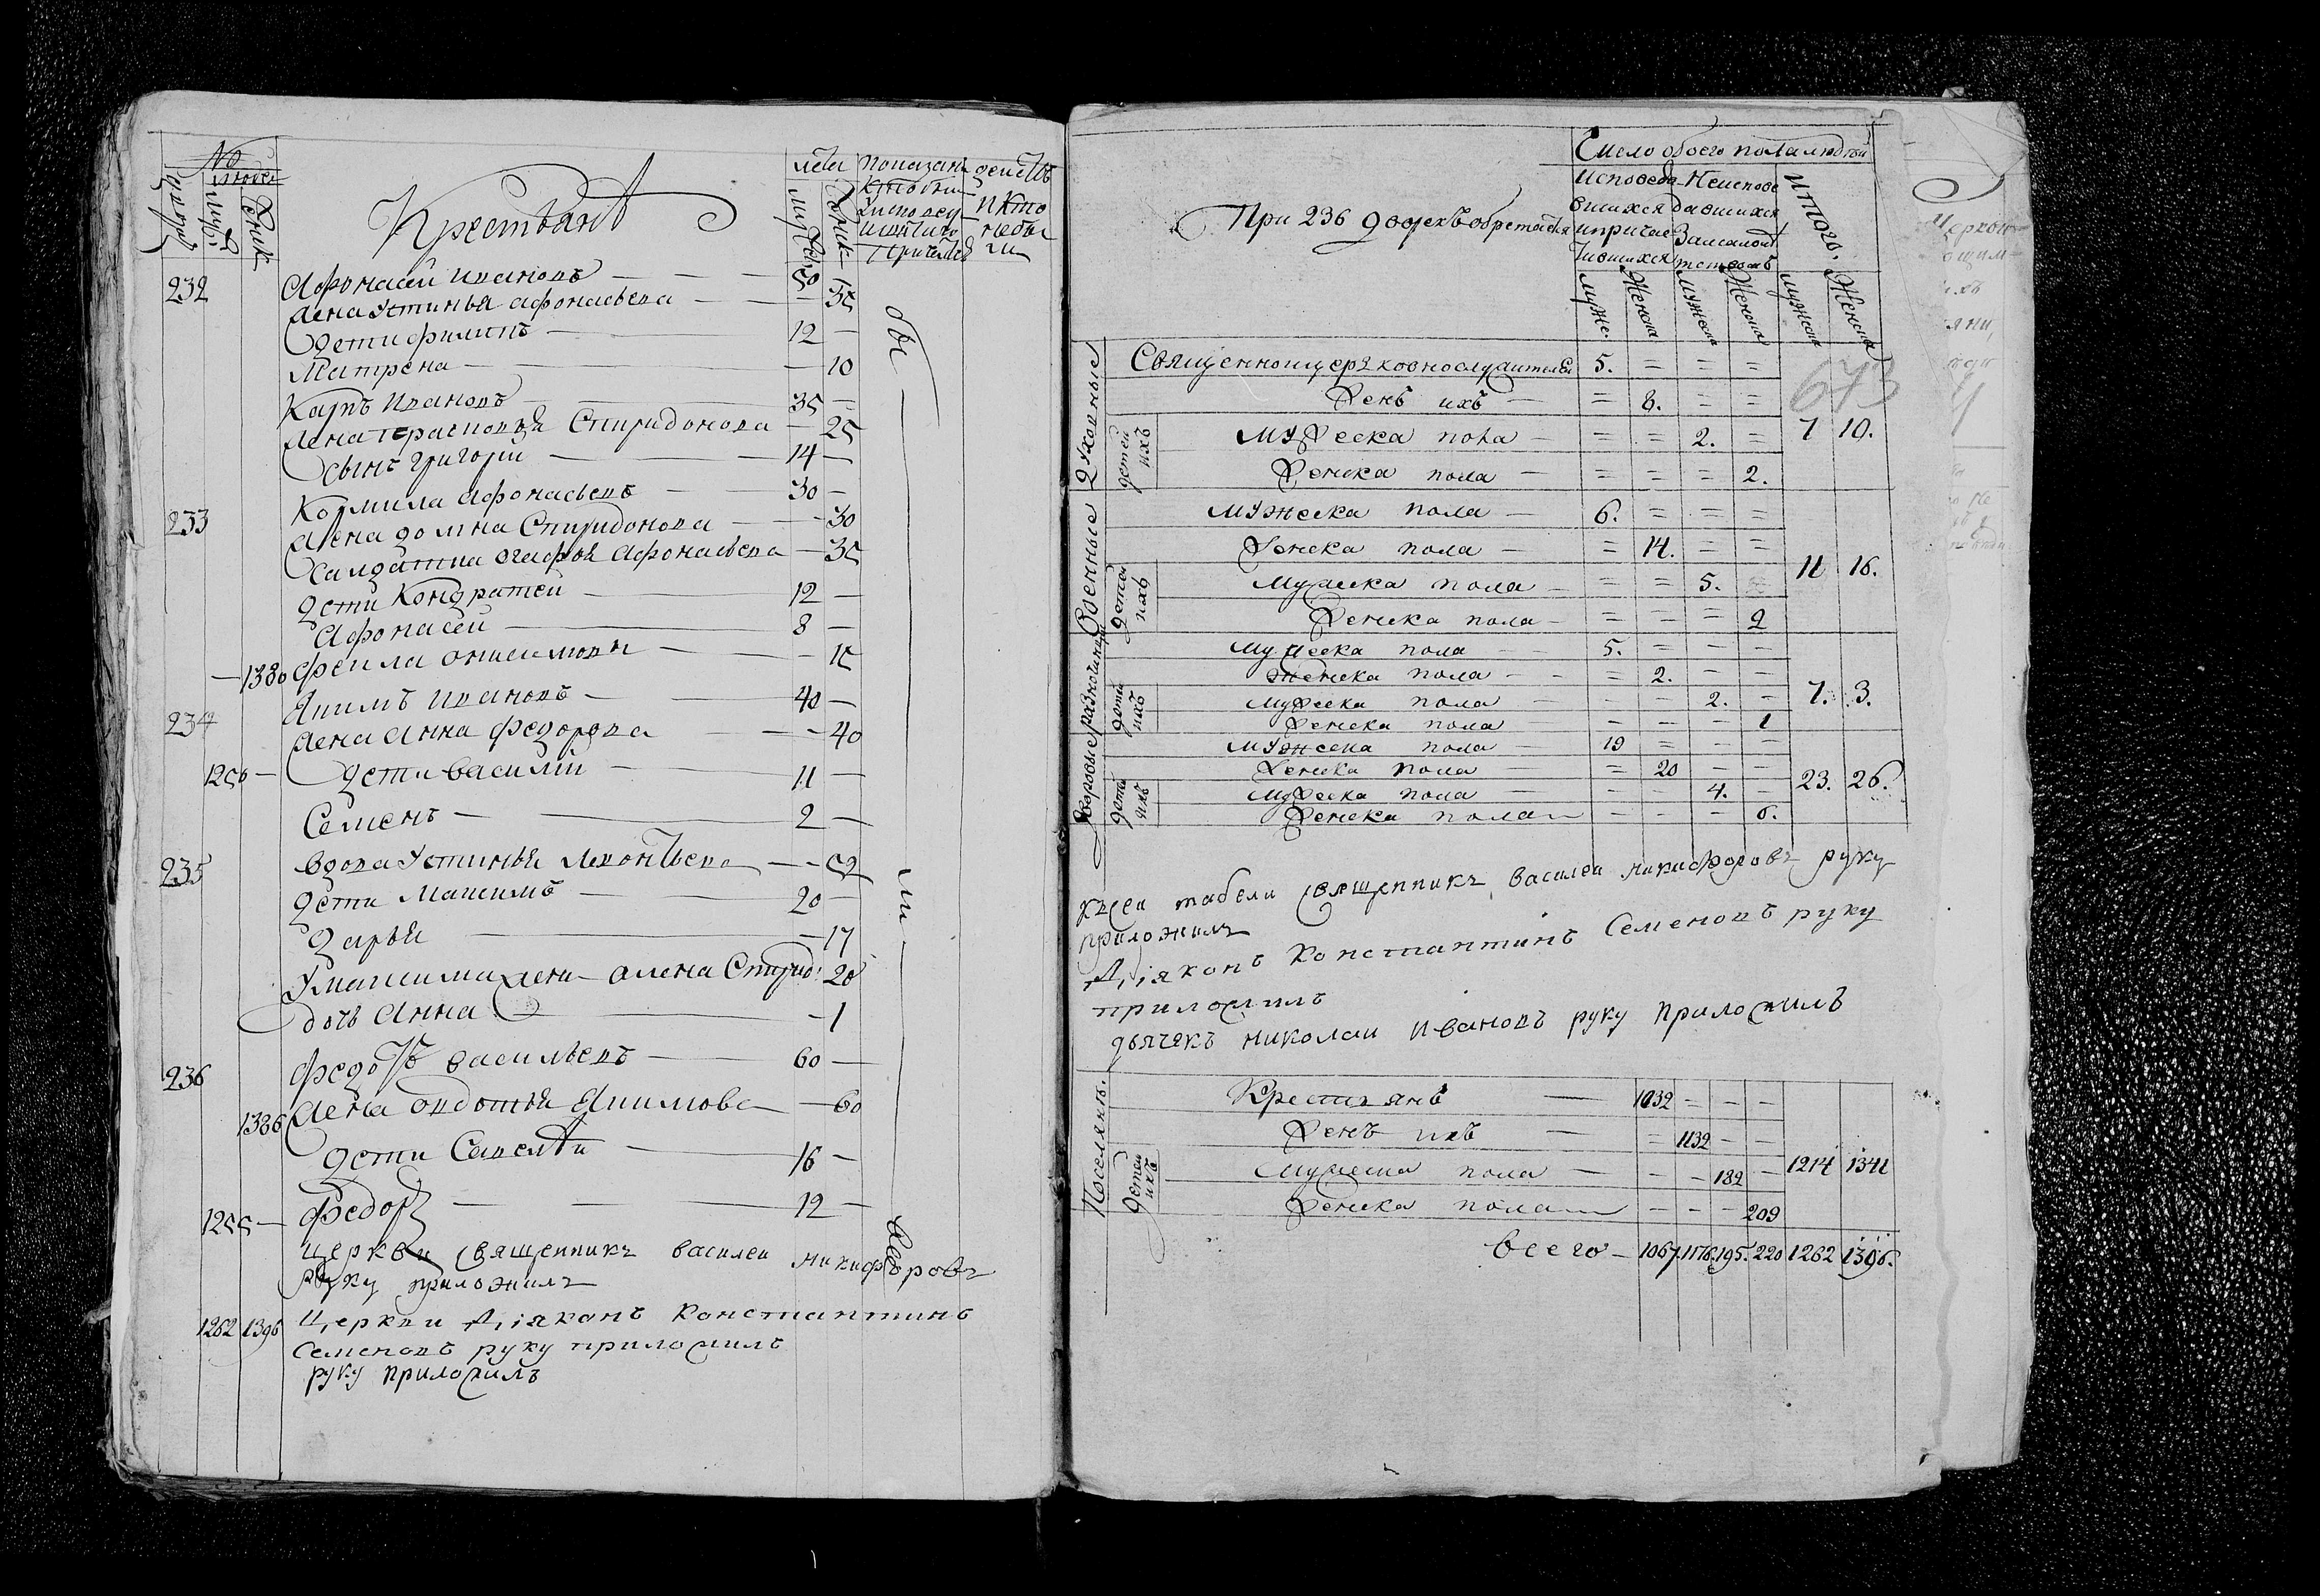 №
людей
дворов
мужс
женск
Крестьянѣ
лета
мужс
женс
показан дѣиств
кто были
и кто
не бы
ли
232 Афонасей ивановъ — 50
жена Устинья афонасьева — 35
дети филипъ — 12
Матрена — 10
Карпъ ивановъ — 35 —
жена Прасковья Спиридонова — 25
сынъ григорий — 14 —
233 Кормила афонасьевъ — 30 —
жена домна Спиридонова — 30
салдатка агафья афонасьева — 35
дети Кондратей — 12 —
афонасей — 8 —
— 1380 феила онисимова — 15
234 Якимъ ивановъ — 40 —
жена анна федорова — 40
1250 — дети василий — 11 —
Семенъ — 2 —
235 вдова Устинья леонтьева — 52
дети Максимъ — 20 —
дарья — 17
У максима жена алена Спирид: 20
дочь анна — 1
236 федотъ васильевъ — 60 —
1386 жена авдотья Якимова — 60
дети Савелѣи — 16 —
1255 — федоръ — 12 —
бы
ли
все
церкви священникъ василеи никифоровъ
руку приложилъ
1262 1396 Церкви Диіяконъ Константинъ
Семеновъ руку приложилъ
руку приложилъ
Число обоего пола людѣй
При 236 дворехъ обретается
исповеда
вшихся
и причас
тившихся
Неиспове
давшихся
За малолѣ
тствомъ
итого.
мужс.
Женска
мужеска
Женска
мужеска
Женска
673
Духовные
Священноцерковнослужителей 5. = = =
Женъ ихъ = 8. = =
детей ихъ
мужеска пола = = 2. = 7 10.
Женска пола = = = 2.
Военные
мужеска пола 6. = = =
Женска пола = 14. = =
детей ихъ
мужеска пола = = 5. = 11 16.
Женска пола = = = 2
разночинцы
мужеска пола 5. — — —
Женска пола = 2. — —
дети ихъ
мужеска пола — — 2. — 7. 3.
Женска пола — — — 1
Дворовые
мужеска пола 19 = — —
Женска пола = 20 — —
дети ихъ
мужеска пола — — 4. — 23. 26.
Женска пола — — — 6.
къ сеи табели священникъ василеи никифоровъ руку
приложилъ
Диіяконъ Константинъ Семеновъ руку
приложилъ
дьячекъ николаи ивановъ руку приложилъ
Поселянъ.
Крестьянъ 1032 — — —
Женъ ихъ = 1132 — —
детей ихъ
мужеска пола — — 182 — 1214 1341
Женска пола — — — 209
всего — 1067. 1176. 195. 220 1262 1396.